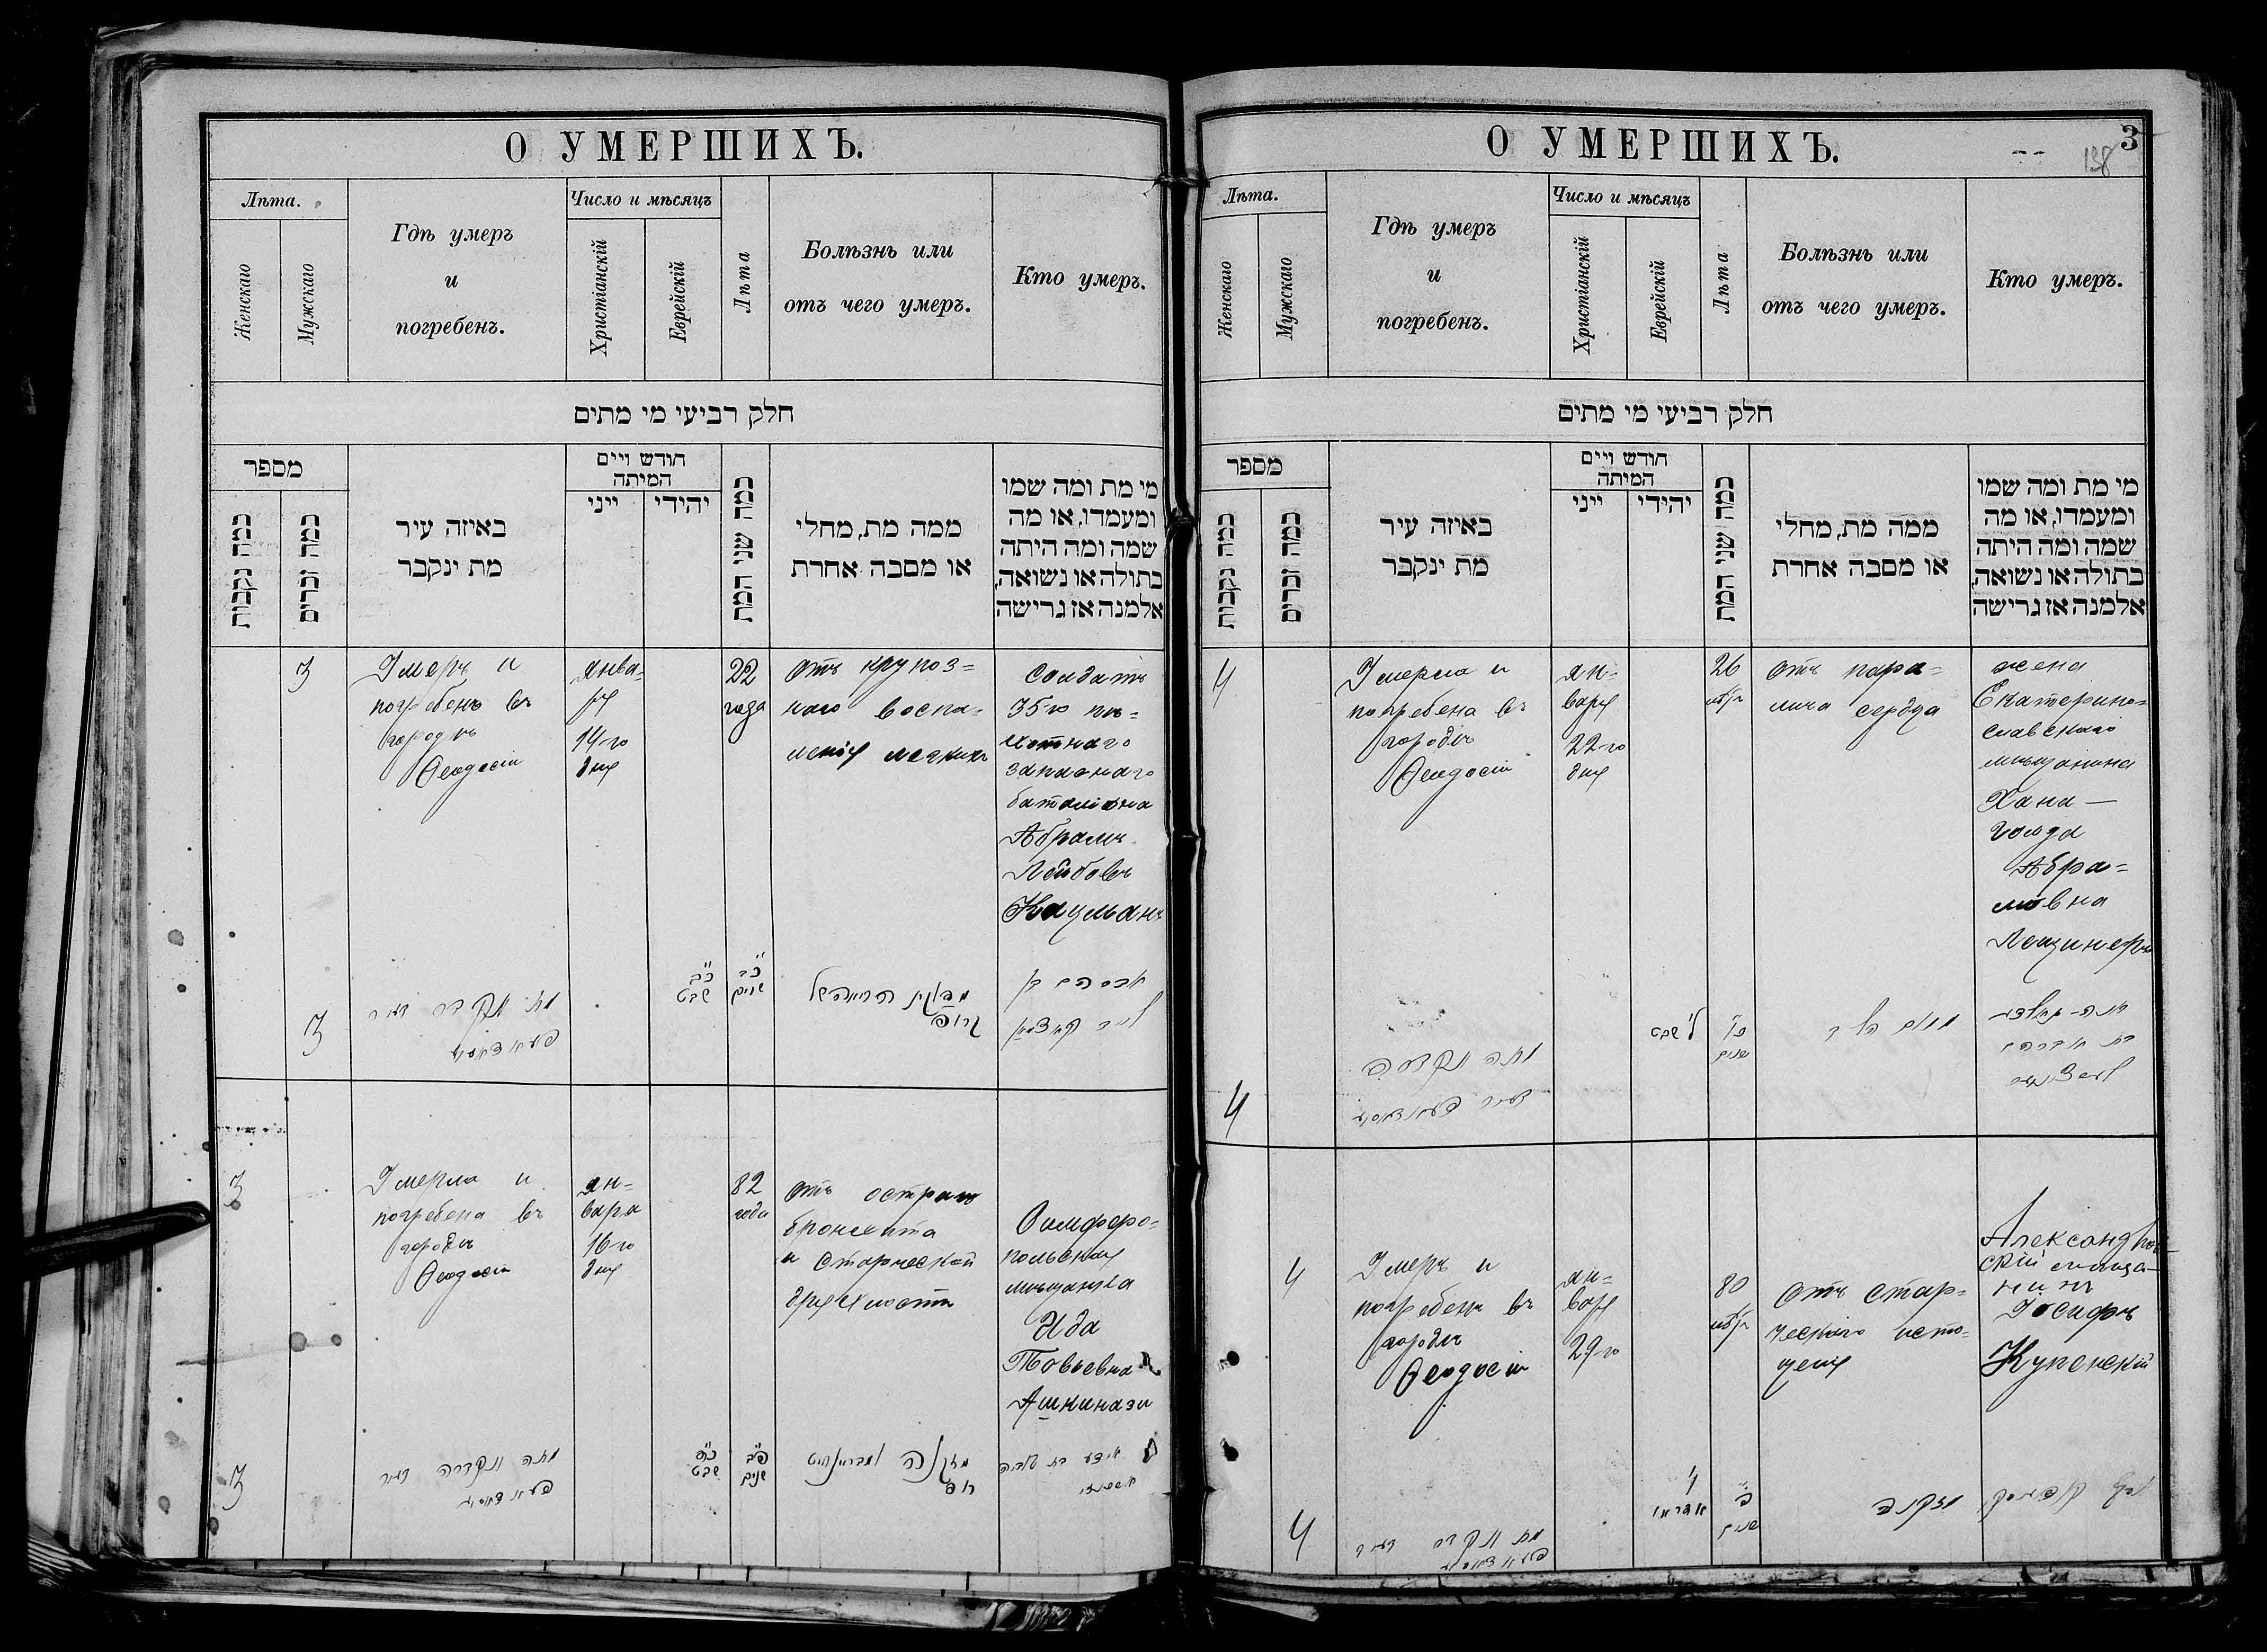 О УМЕРШИХЪ.
Лѣта.
Женскаго
Мужскаго
Гдѣ умеръ
и
погребенъ.
Число и мѣсяцъ
Христіанскій
Еврейскій
Лѣта
Болѣзнь или
отъ чего умеръ.
Кто умеръ.
חלק רביעי מי מתים
מספר
כמה נקבות
כמה זכרים
באיזה עיר
מת ינקבר
חודש ויים
המיתה
ייני
יהידי
כמה שני המת
ממה מת, מחלי
או מסבה אחרת
מי מת ומה שמו
ומעמדו, או מה
שמה ומה היתה
בתולה או נשואה,
אלמנה אז גרישה
3
Умеръ и
погребенъ въ
городѣ
Ѳеодосіи
Янва-
ря
14го
дня
22
года
отъ крупоз=
наго воспа=
ленія легкихъ
Солдатъ
35го пѣ=
хотнаго
запаснаго
баталіона
Абрамъ
Лейбовъ
Кауманъ
3
מת ונקבר בעיר
כ"ב
שבט
כ"ב
שנים
אברהם בן
3
Умерла и
погребена въ
городѣ
Ѳеодосіи
Ян=
варя
16го
дня
82
года
отъ остраго
бронхита
и старческой
дряхлости
Симферо=
польская
мѣщанка
Ида
Товьевна
Ашкинази
3
מתה ונקברה בעיר
שבט
פ"ב
שנים
О УМЕРШИХЪ.
3
138
Лѣта.
Женскаго
Мужскаго
Гдѣ умеръ
и
погребенъ.
Число и мѣсяцъ
Христіанскій
Еврейскій
Лѣта
Болѣзнь или
отъ чего умеръ.
Кто умеръ.
חלק רביעי מי מתים
מספר
כמה נקבות
כמה זכרים
באיזה עיר
מת ינקבר
חודש ויים
המיתה
ייני
יהידי
כמה שני המת
ממה מת, מחלי
או מסבה אחרת
מי מת ומה שמו
ומעמדו, או מה
שמה ומה היתה
בתולה או נשואה,
אלמנה אז גרישה
4
Умерла и
погребена въ
городѣ
Ѳеодосіи
Ян=
варя
22го
дня
26
лѣтъ
отъ пара=
лича сердца
жена
Екатерино=
славскаго
мѣщанина
Хана —
Голда
Абра=
мовна
4
ל' שבט
שנים
בת אברהם
4
Умеръ и
погребенъ въ
городѣ
Ѳеодосіи
Ян=
варя
29го
80
лѣтъ
Отъ стар=
ческаго исто=
щенія
Александров-
скій мѣща-
нинъ
Іосифъ
Купенскій
4
מת ונקבר בעיר
פ'
שנים
מזקנה